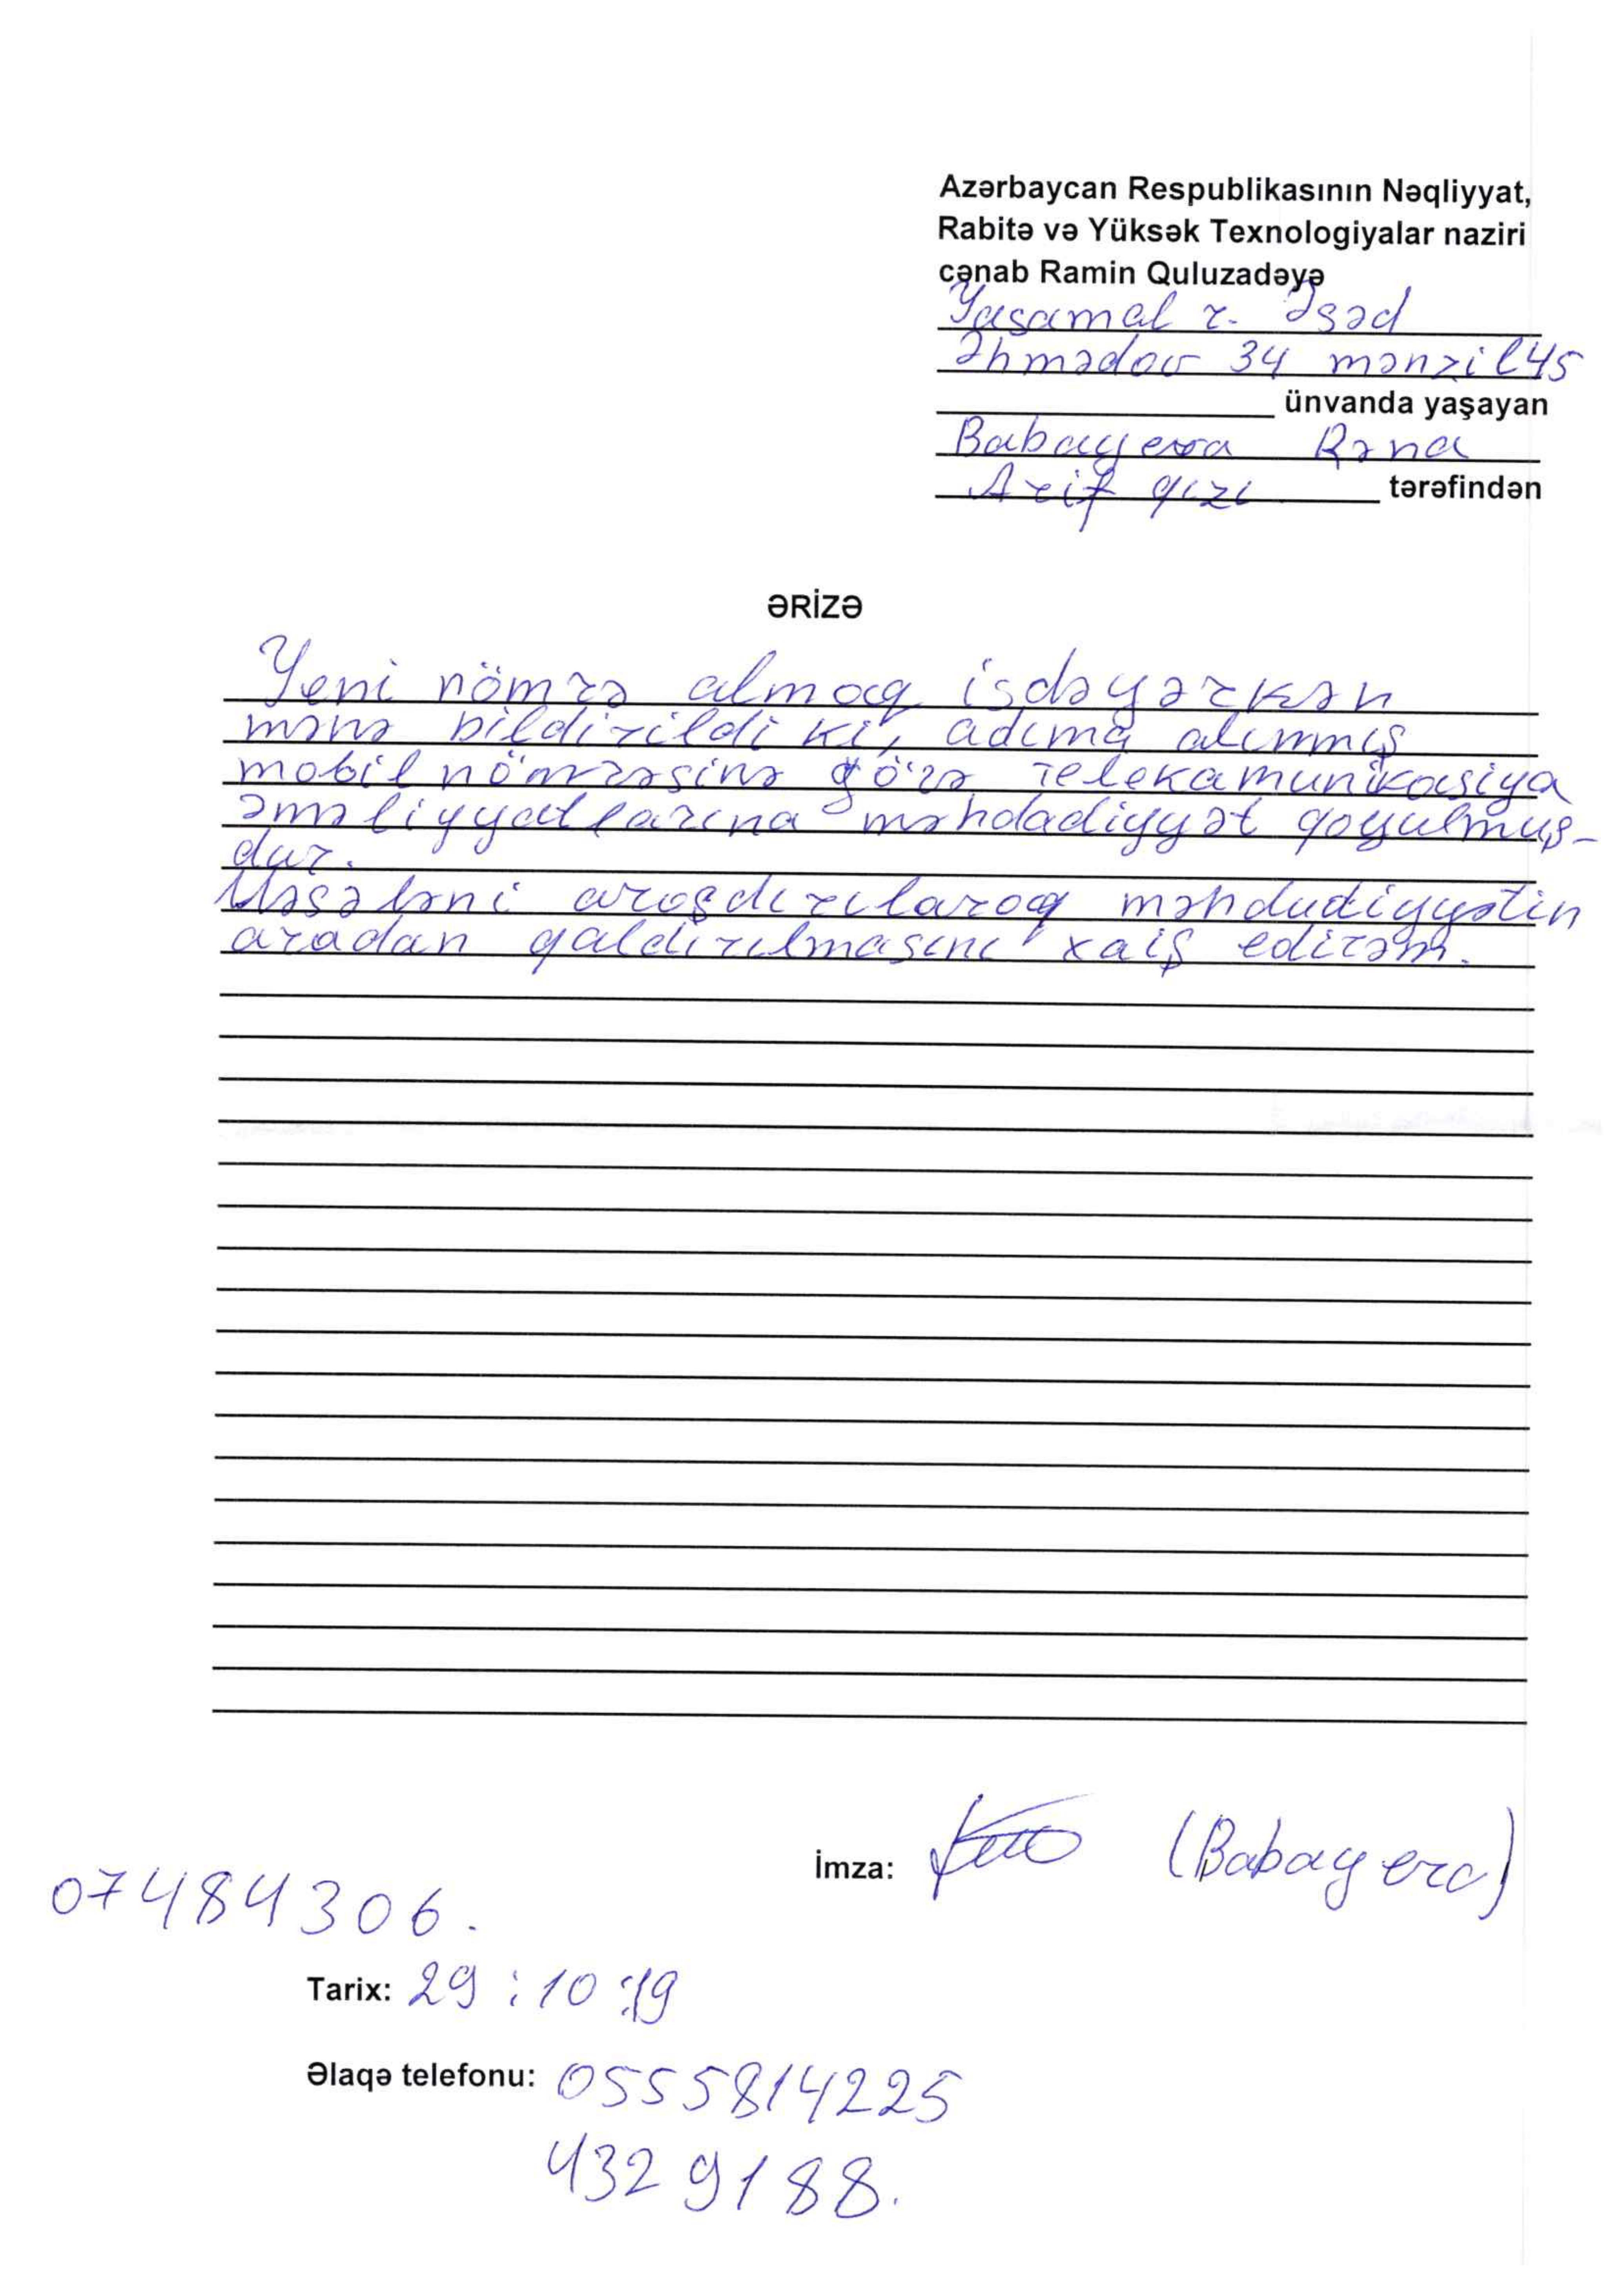 Azərbaycan Respublikasının Nəqliyyat,
Rabitə və Yüksək Texnologiyalar naziri
cənab Ramin Quluzadəyə
Yasamal r. Əsəd
Əhmədov 34 mənzil 45
ünvanda yaşayan
Babayeva Rəna
Arif qızı tərəfindən
ƏRİZƏ
Yeni nömrə almaq isdəyərkən
mənə bildirildi ki, adıma alınmış
mobil nömrəsinə görə Telekamunikasiya
əməliyyatlarına məhdadiyyət qoyulmuş-
dur.
Məsələni araşdırılaraq məhdudiyyətin
aradan qaldırılmasını xaiş edirəm.
İmza: (Babayeva)
07484306.
Tarix: 29:10:19
Əlaqə telefonu: 0555814225
4329188.